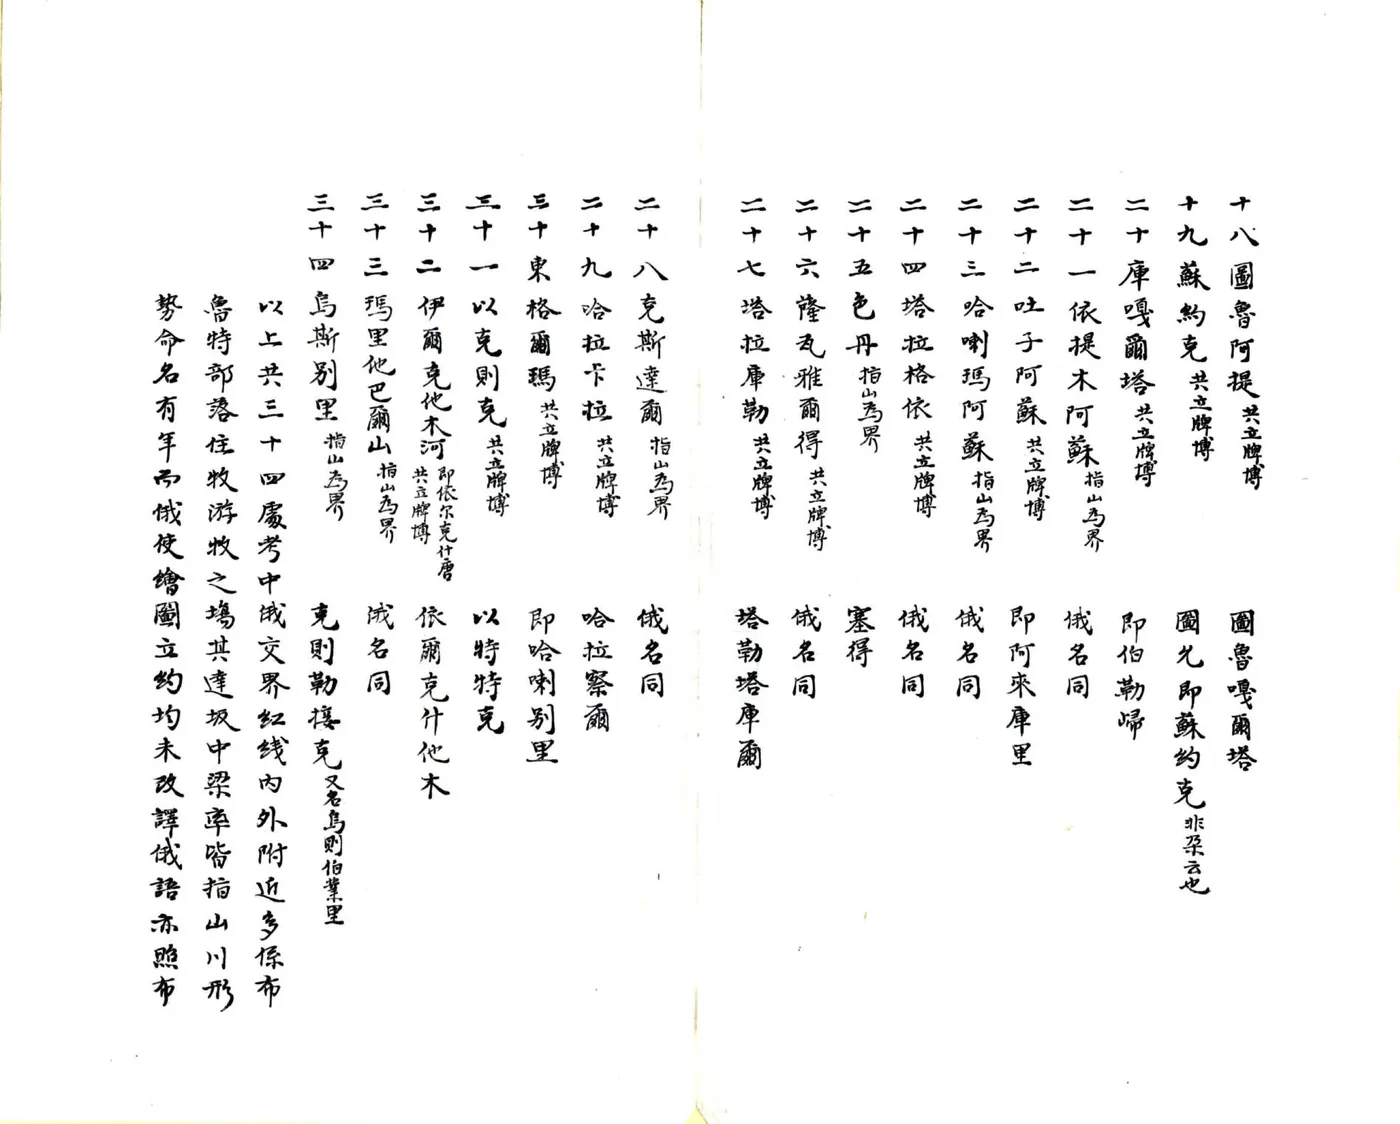 十八圖魯阿提 共立牌博 圖魯嘎爾塔
十九蘇約克 共立牌博 圖允即蘇約克 非朶云也
二十庫嘎爾塔 共立牌博 即伯勒歸
二十一依提木阿蘇 指山為界 俄名同
二十二吐子阿蘇 共立牌博 即阿來庫里
二十三哈喇瑪阿蘇 指山為界 俄名同
二十四塔拉格依 共立牌博 俄名同
二十五色丹 指山為界 塞得
二十六薩瓦雅爾得 共立牌博 俄名同
二十七塔拉庫勒 共立牌博 塔勒塔庫爾
二十八克斯達爾 指山為界 俄名同
二十九哈拉卡拉 共立牌博 哈拉察爾
三十東格爾瑪 共立牌博 即哈喇別里
三十一以克則克 共立牌博 以特特克
三十二伊爾克他木河 即依尔克什唐 共立牌博 依爾克什他木
三十三瑪里他巴爾山 指山為界 俄名同
三十四烏斯別里 指山為界 克則勒接克 又名烏則伯業里
以上共三十四處考中俄交界紅线內外附近多係布
魯特部落住牧游牧之塲其達坂中梁率皆指山川形
勢命名有年而俄使繪圖立約均未改譯俄語亦照布